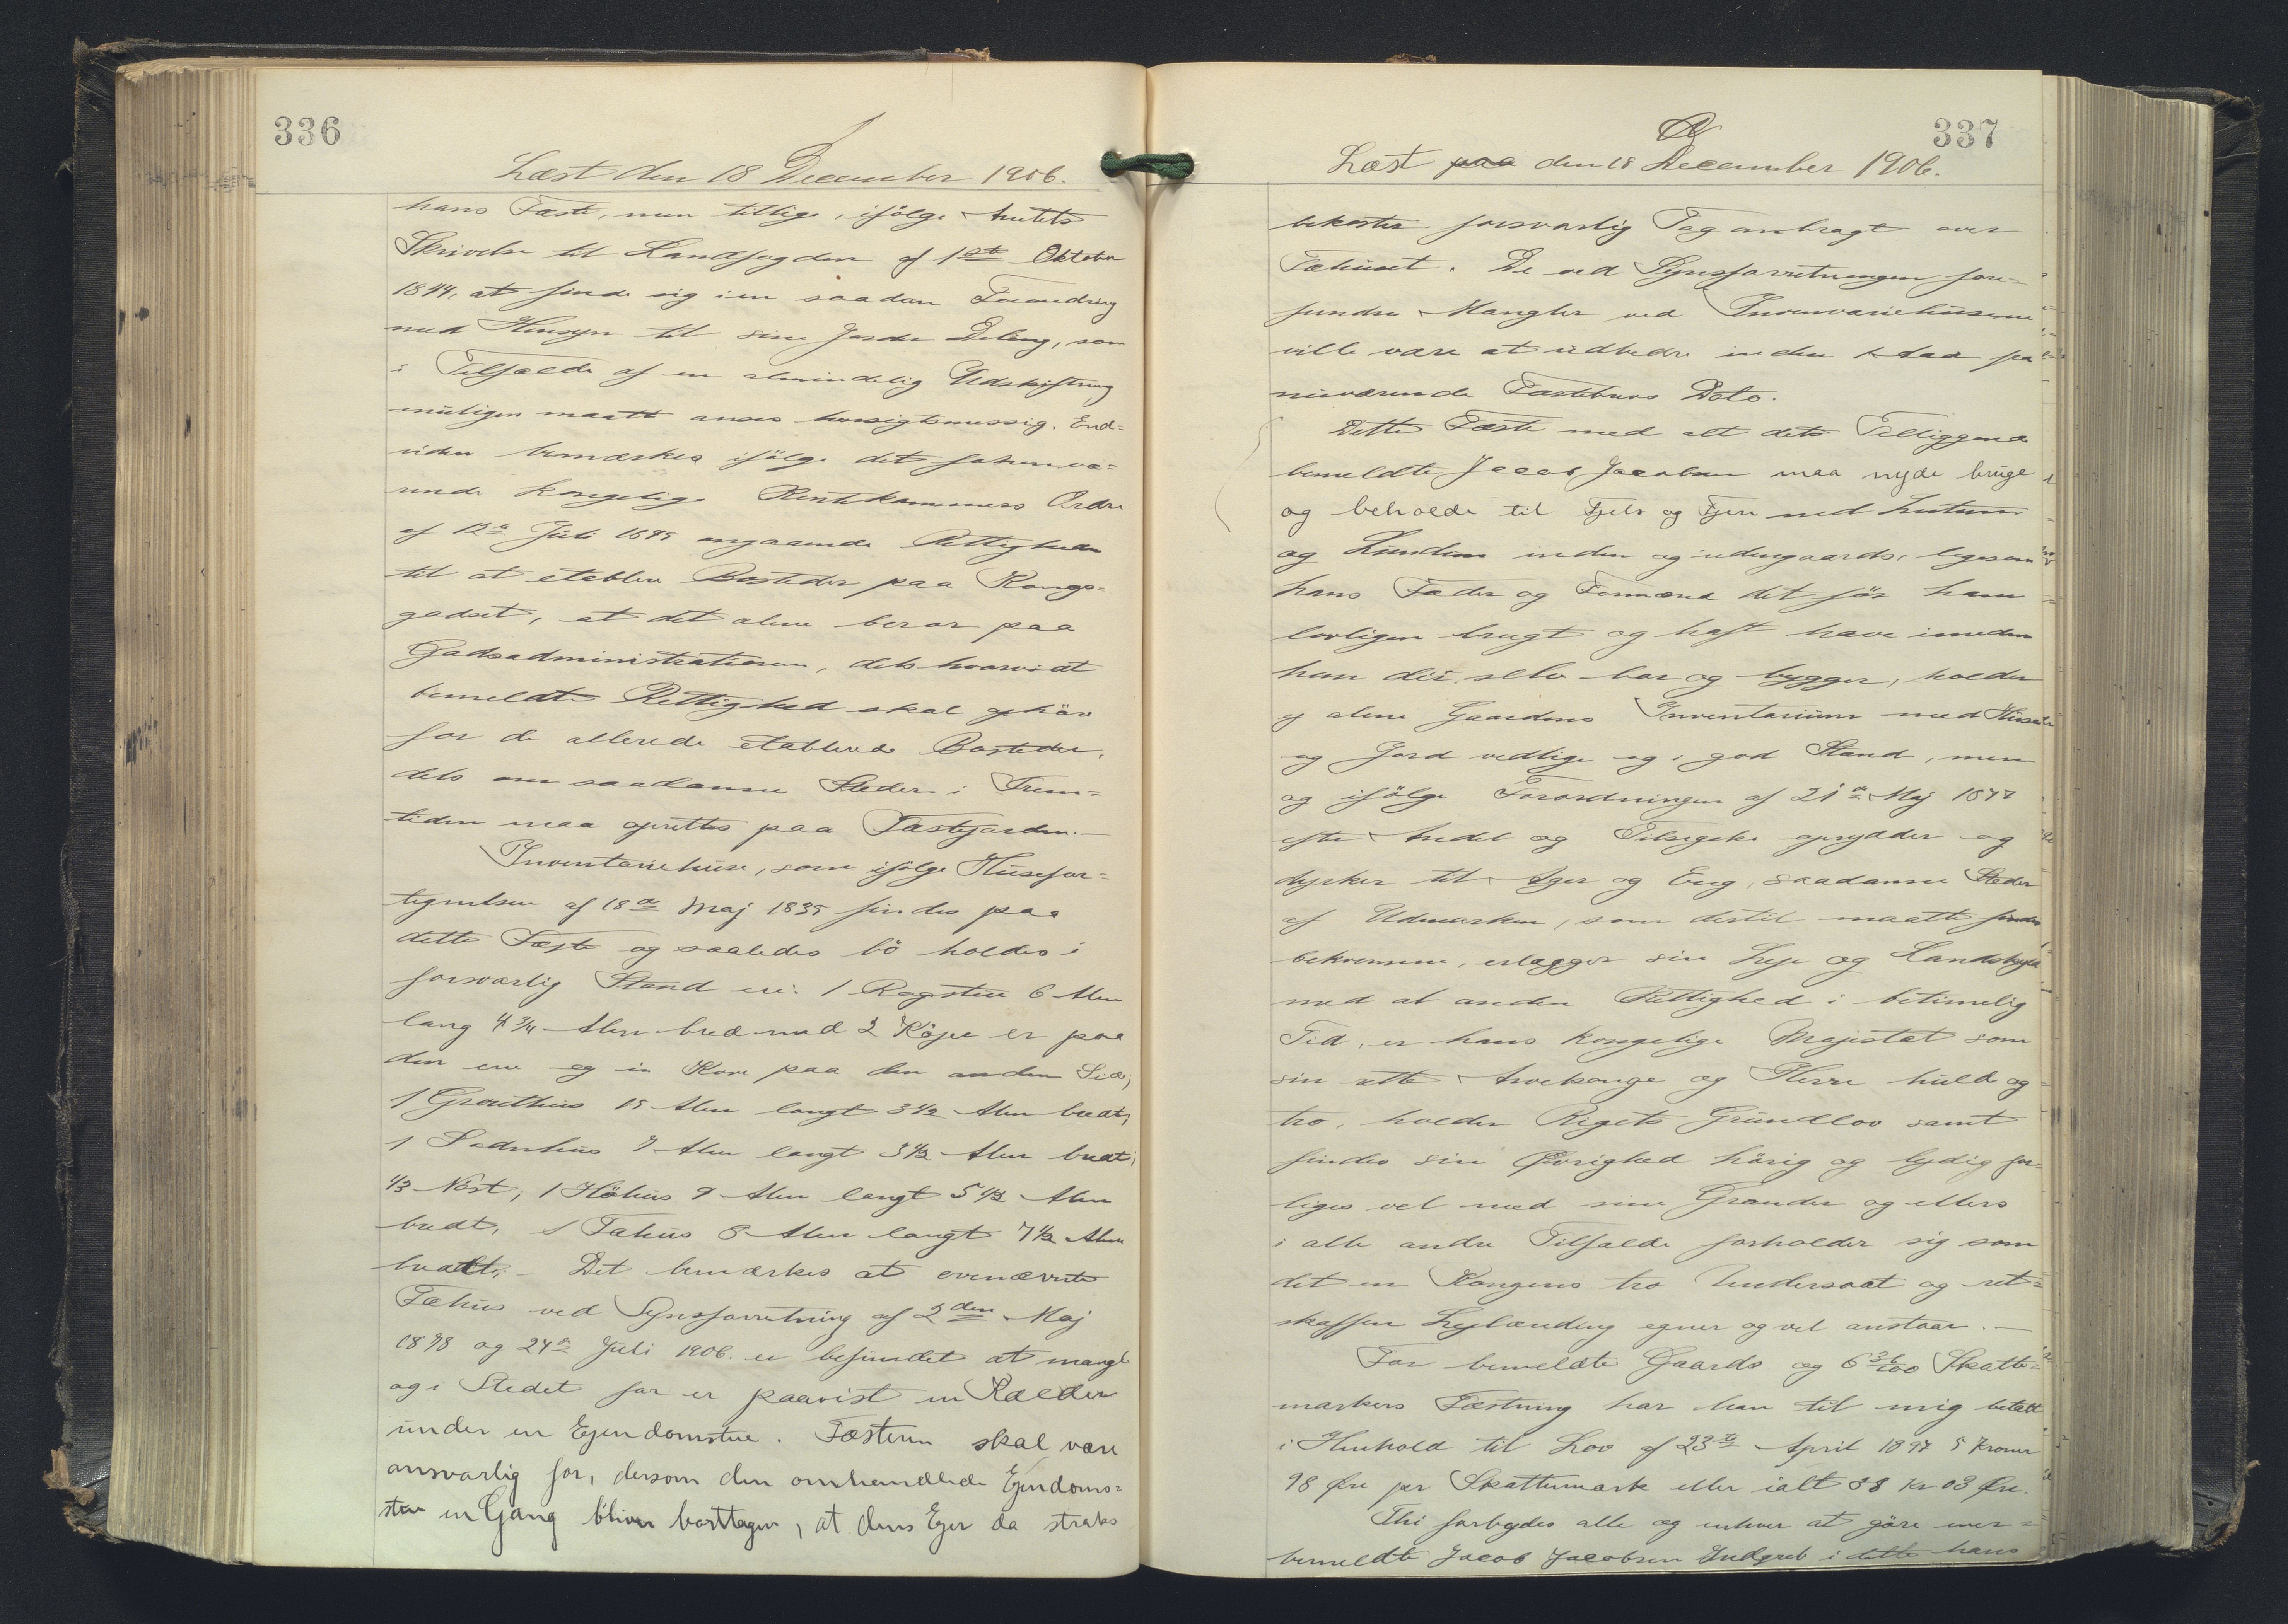 336
Læst den 18 December 1906.
hans Fæste, men tillige, ifölge Amtets
Skrivelse til Landfogden af 1ste Oktober
1844, at finde sig i en saadan Forandring
med Hensyn til sine Jorders Deling, som
i Tilfælde af en almindelig Udskiftning
muligen maatte anses hensigtsmessig. End=
viden bemærkes ifölge det forhenvæ=
rende kongelige Rentekammers Ordre
af 12te Juli 1845 angaaende Rettigheden
til at etablere Bosteder paa Kongs=
godset, at det alene beror paa
Godsadministrationen, dels hvorvidt
bemeldte Rettighed skal ophöre
for de allerede etablerede Bosteder,
dels om saadanne Steder i Frem=
tiden maa oprettes paa Fæstejorden.—
Inventariehuse, som ifölge Husefor=
tegnelsen af 18de Maj 1835 findes paa
dette Fæste og saaledes bö holdes i
forsvarlig Stand er: 1 Rogstue 6 Alen
lang 4 3/4 Alen bred med 2 Köjer er paa
den ene og en Kove paa den anden Side,
1 Grouthus 15 Alen langt 3 1/2 Alen bredt,
1 Sodnhus 7 Alen langt 3 1/2 Alen bredt,
1/3 Nöst, 1 Höhus 9 Alen langt 5 1/2 Alen
bredt, 1 Fæhus 8 Alen langt 7 1/2 Alen
bredt;— Det bemærkes at ovennævnte
Fæhus ved Synsforretning af 2den Maj
1898 og 24de Juli 1906. er befundet at mangle
og i Stedet for er paavist en Kælder
under en Ejendomstue. Fæsteren skal være
ansvarlig for, dersom den omhandlede Ejendoms=
stue en Gang bliver borttagen, at dens Ejer da straks
337
Læst paa den 18 December 1906.
bekoster forsvarlig Tag anbragt over
Fæhuset. De ved Synsforretningen fore=
fundne Mangler ved Inventariehusene
ville være at udbedre inden 1 Aar fra
nuværende Fæstebrevs Dato.
Dette Fæste med alt dets Tilliggende
bemeldte Jacob Jacobsen maa nyde bruge
og beholde til Fjels og Fjere med Lutum
og Lundum inden og udengaards, ligesom
hans Fader og Formænd det för ham
lovligen brugt og haft have imeden
han der selv bor og bygger, holder
og alene Gaardens Inventarium med Huse
og Jord vedlige og i god Stand, men
og ifölge Forordningen af 21de Maj 1877
efter Andel og Tilsigelse oprydder og
dyrker til Ager og Eng, saadanne Steder
af Udmarken, som dertil maatte findes
bekvemme, erlægger sin Leje og Landskyld
med al anden Rettighed i betimelig
Tid, er hans kongelige Majestæt som
sin rette Arvekonge og Herre huld og
tro, holder Rigets Grundlov samt
findes sin Øvrighed hörig og lydig for=
liges vel med sine Grander og ellers
i alle andre Tilfælde forholder sig som
det en Kongens tro Undersaat og ret=
skaffen Lejlænding egner og vel anstaar.—
For bemeldte Gaards og 6 36/100 Skatte=
markers Fæstning har han til mig betalt
i Henhold til Lov af 23de April 1897 5 Kroner
98 Øre pr Skattemark eller ialt 38 Kr 03 Øre.
Thi forbydes alle og enhver at göre mer=
bemeldte Jacob Jacobsen Indgreb i dette hans